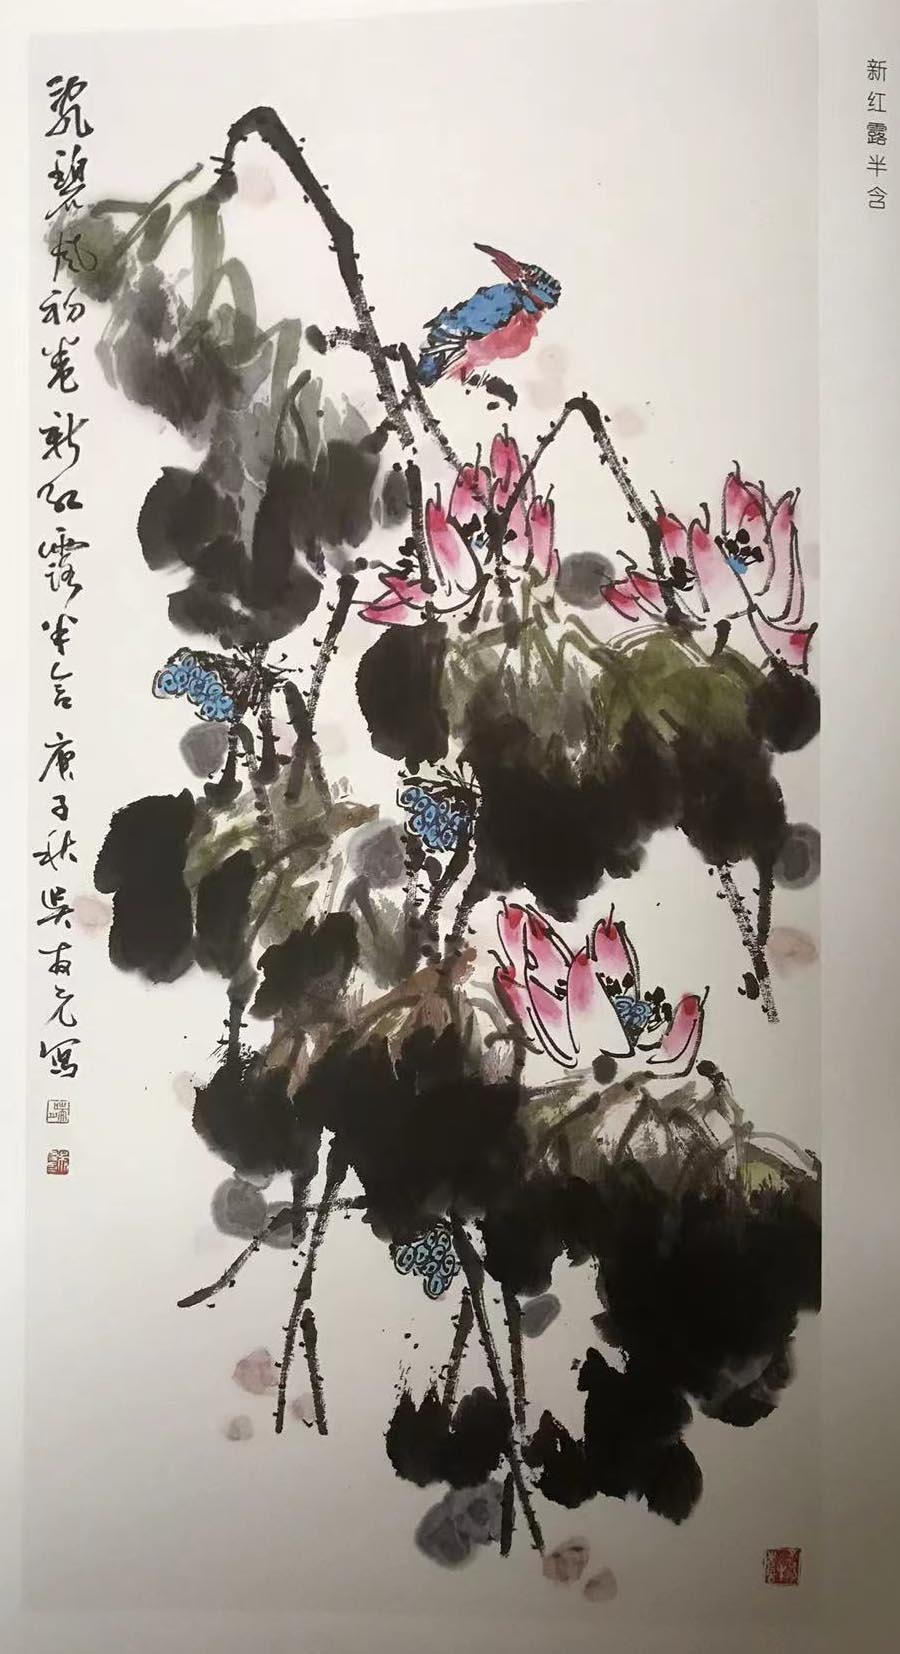 新红露半含
乱碧风初卷新红露半含庚子秋吴友元写